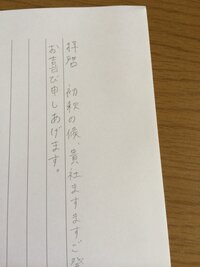 拝啓　初秋の候、貴社ますますご
お喜び申しあげます。